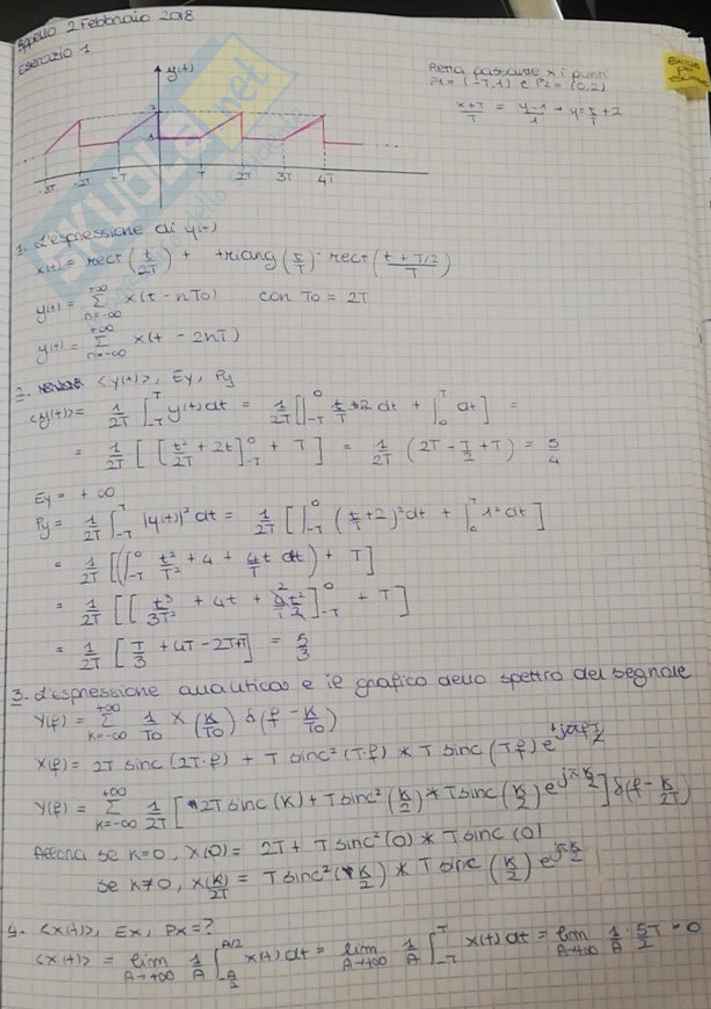 Appello 2 Febbraio 2018
Esercizio 1
y(t)
Retta passante x i punti
P1 = (-T,1) e P2 = (0,2)
(x+T)/T = (y-1)/1 → y = x/T + 2
2
1
-3T -2T -T T 2T 3T 4T
SKUOLA.net
1. L'espressione di y(t)
x(t) = rect(t/2T) + triang(t/T) · rect((t + T/2)/T)
y(t) = Σ_{n=-∞}^{+∞} x(t - nT0) con T0 = 2T
y(t) = Σ_{n=-∞}^{+∞} x(t - 2nT)
2. <y(t)>, Ey, Py
<y(t)> = 1/2T ∫_{-T}^{T} y(t) dt = 1/2T [∫_{-T}^{0} t/T + 2 dt + ∫_{0}^{T} dt] =
= 1/2T [[t²/2T + 2t]_{-T}^{0} + T] = 1/2T (2T - T/2 + T) = 5/4
Ey = +∞
Py = 1/2T ∫_{-T}^{T} |y(t)|² dt = 1/2T [∫_{-T}^{0} (t/T + 2)² dt + ∫_{0}^{T} 1² dt]
= 1/2T [(∫_{-T}^{0} t²/T² + 4 + 4t/T dt) + T]
= 1/2T [[t³/3T² + 4t + 4/T t²/2]_{-T}^{0} + T]
= 1/2T [T/3 + 4T - 2T + T] = 5/3
3. L'espressione analitica e il grafico dello spettro del segnale
Y(f) = Σ_{k=-∞}^{+∞} 1/T0 X(k/T0) δ(f - k/T0)
X(f) = 2T sinc(2T·f) + T sinc²(T·f) * T sinc(Tf) e^{+j2πf T/2}
Y(f) = Σ_{k=-∞}^{+∞} 1/2T [2T sinc(k) + T sinc²(k/2) * T sinc(k/2) e^{jπ k/2}] δ(f - k/2T)
Allora se k=0, X(0) = 2T + T sinc²(0) * T sinc(0)
se k≠0, X(k/2T) = T sinc²(k/2) * T sinc(k/2) e^{jπ k/2}
4. <x(t)>, Ex, Px = ?
<x(t)> = lim_{A→+∞} 1/A ∫_{-A/2}^{A/2} x(t) dt = lim_{A→+∞} 1/A ∫_{-T}^{T} x(t) dt = lim_{A→+∞} 1/A · 5T/2 = 0